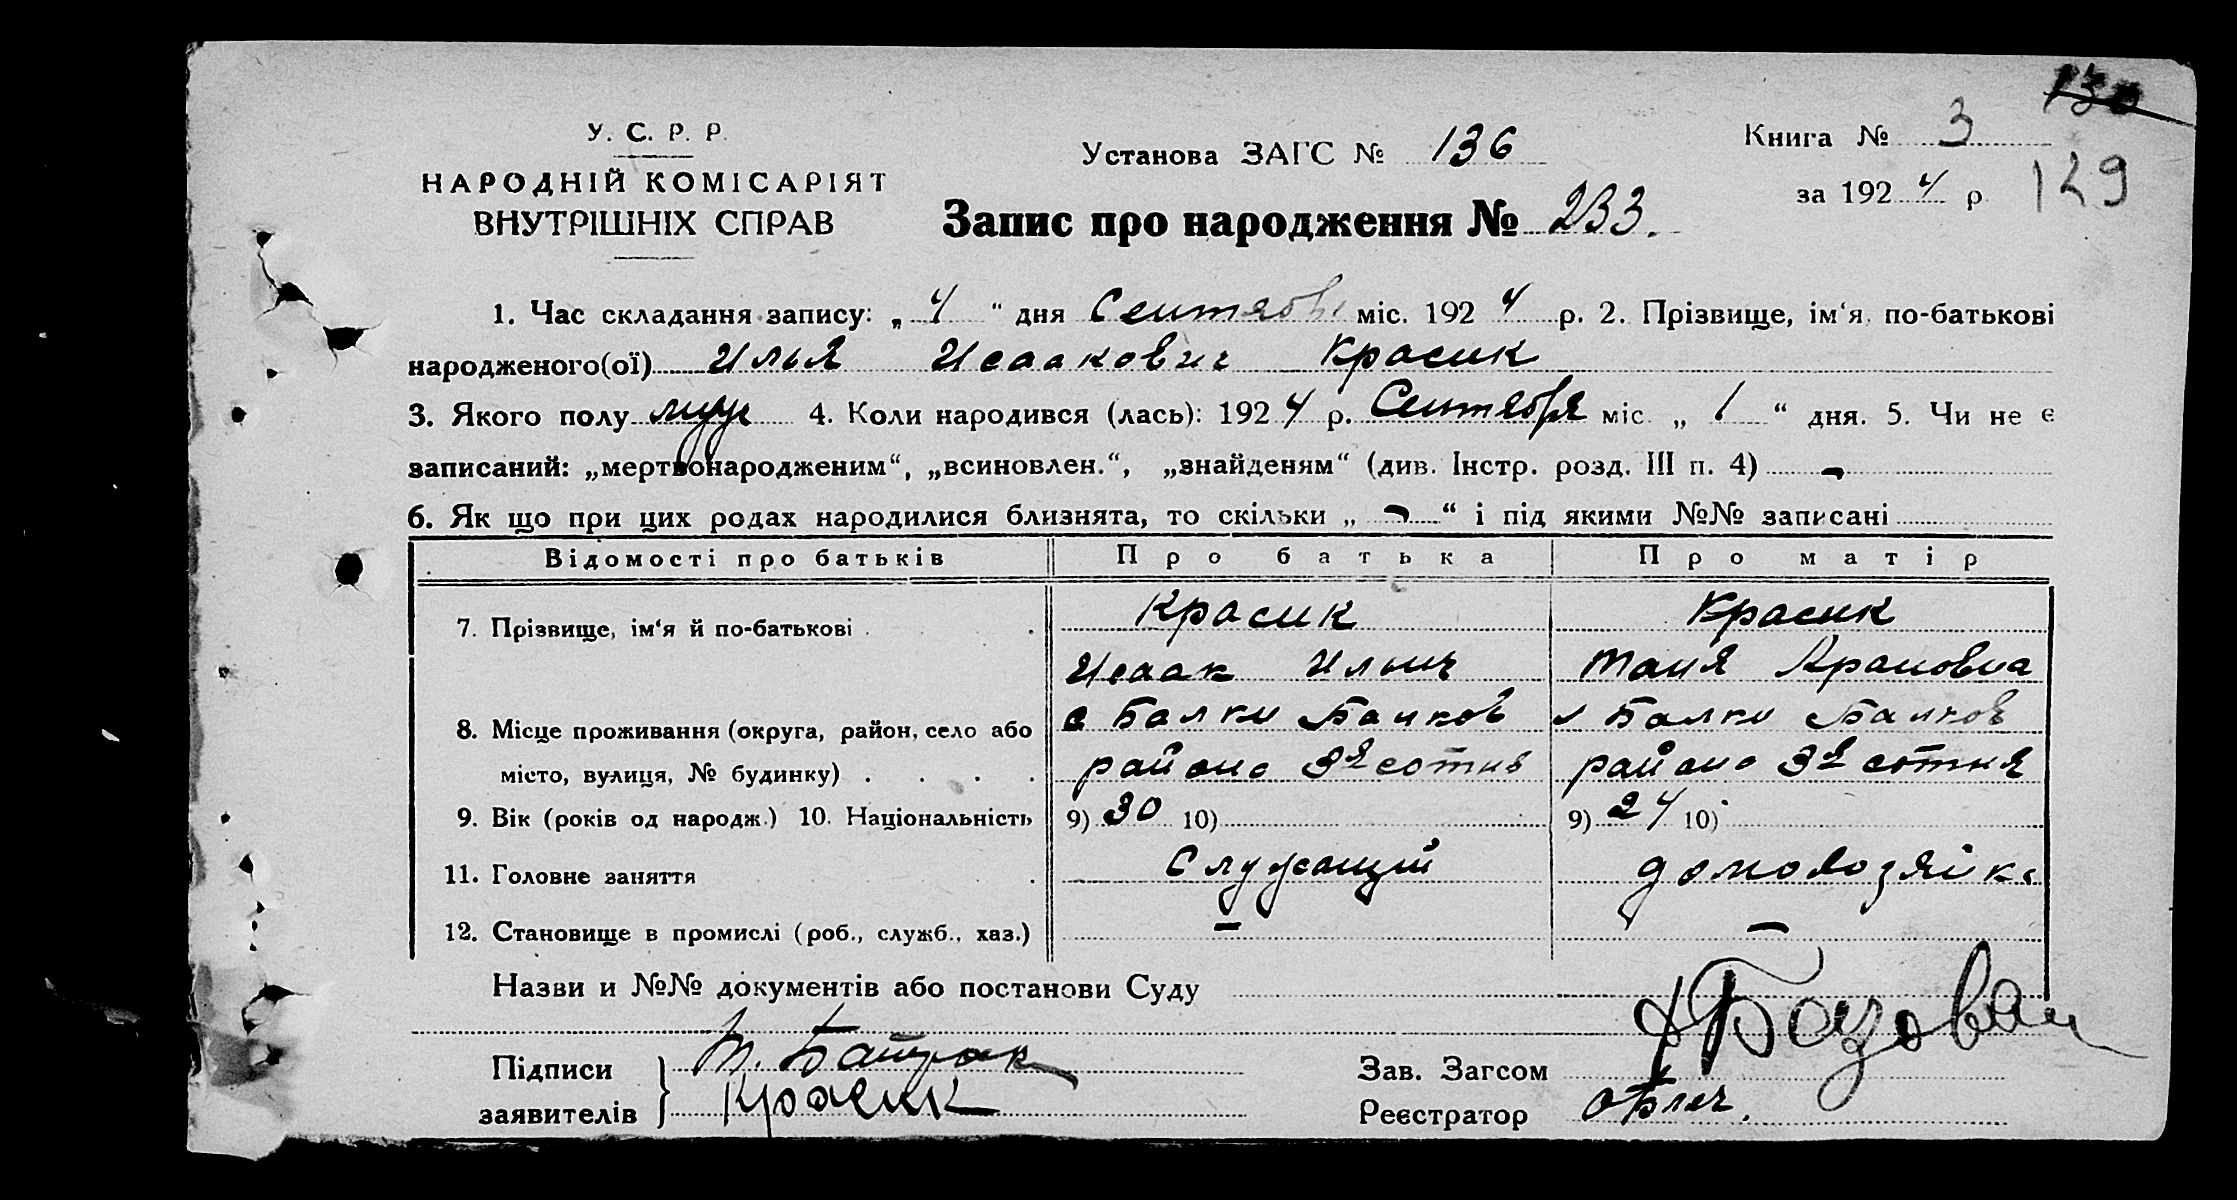 130
У. С. Р. Р.
НАРОДНІЙ КОМІСАРІЯТ
ВНУТРІШНІХ СПРАВ
Установа ЗАГС № 136
Книга № 3
за 1924 р
129
Запис про народження № 233.
1. Час складання запису: „4“ дня Сентября міс. 1924 р. 2. Прізвище, ім‘я, по-батькові
народженого(ої) Илья Исаакович Красик
3. Якого полу муж 4. Коли народився (лась): 1924 р. Сентября міс. „1“ дня. 5. Чи не є
записаний: „мертвонародженим“, „всиновлен.“, „знайденям“ (див. Інстр. розд. III п. 4) -
6. Як що при цих родах народилися близнята, то скільки „-“ і під якими №№ записані
Відомості про батьків Про батька Про матір
7. Прізвище, ім‘я й по-батькові Красик Красик
Исаак Ильич Таня
8. Місце проживання (округа, район, село або с Балки Балков с Балки Балков
місто, вулиця, № будинку) района 3я сотня района 3я сотня
9. Вік (років од народж.) 10. Національність 9) 30 10) 9) 24 10)
11. Головне заняття Служащий домохозяйка
12. Становище в промислі (роб., служб., хаз.) - -
Назви и №№ документів або постанови Суду
Підписи
заявителів
Т. Батрак
Красик
Зав. Загсом
Реєстратор